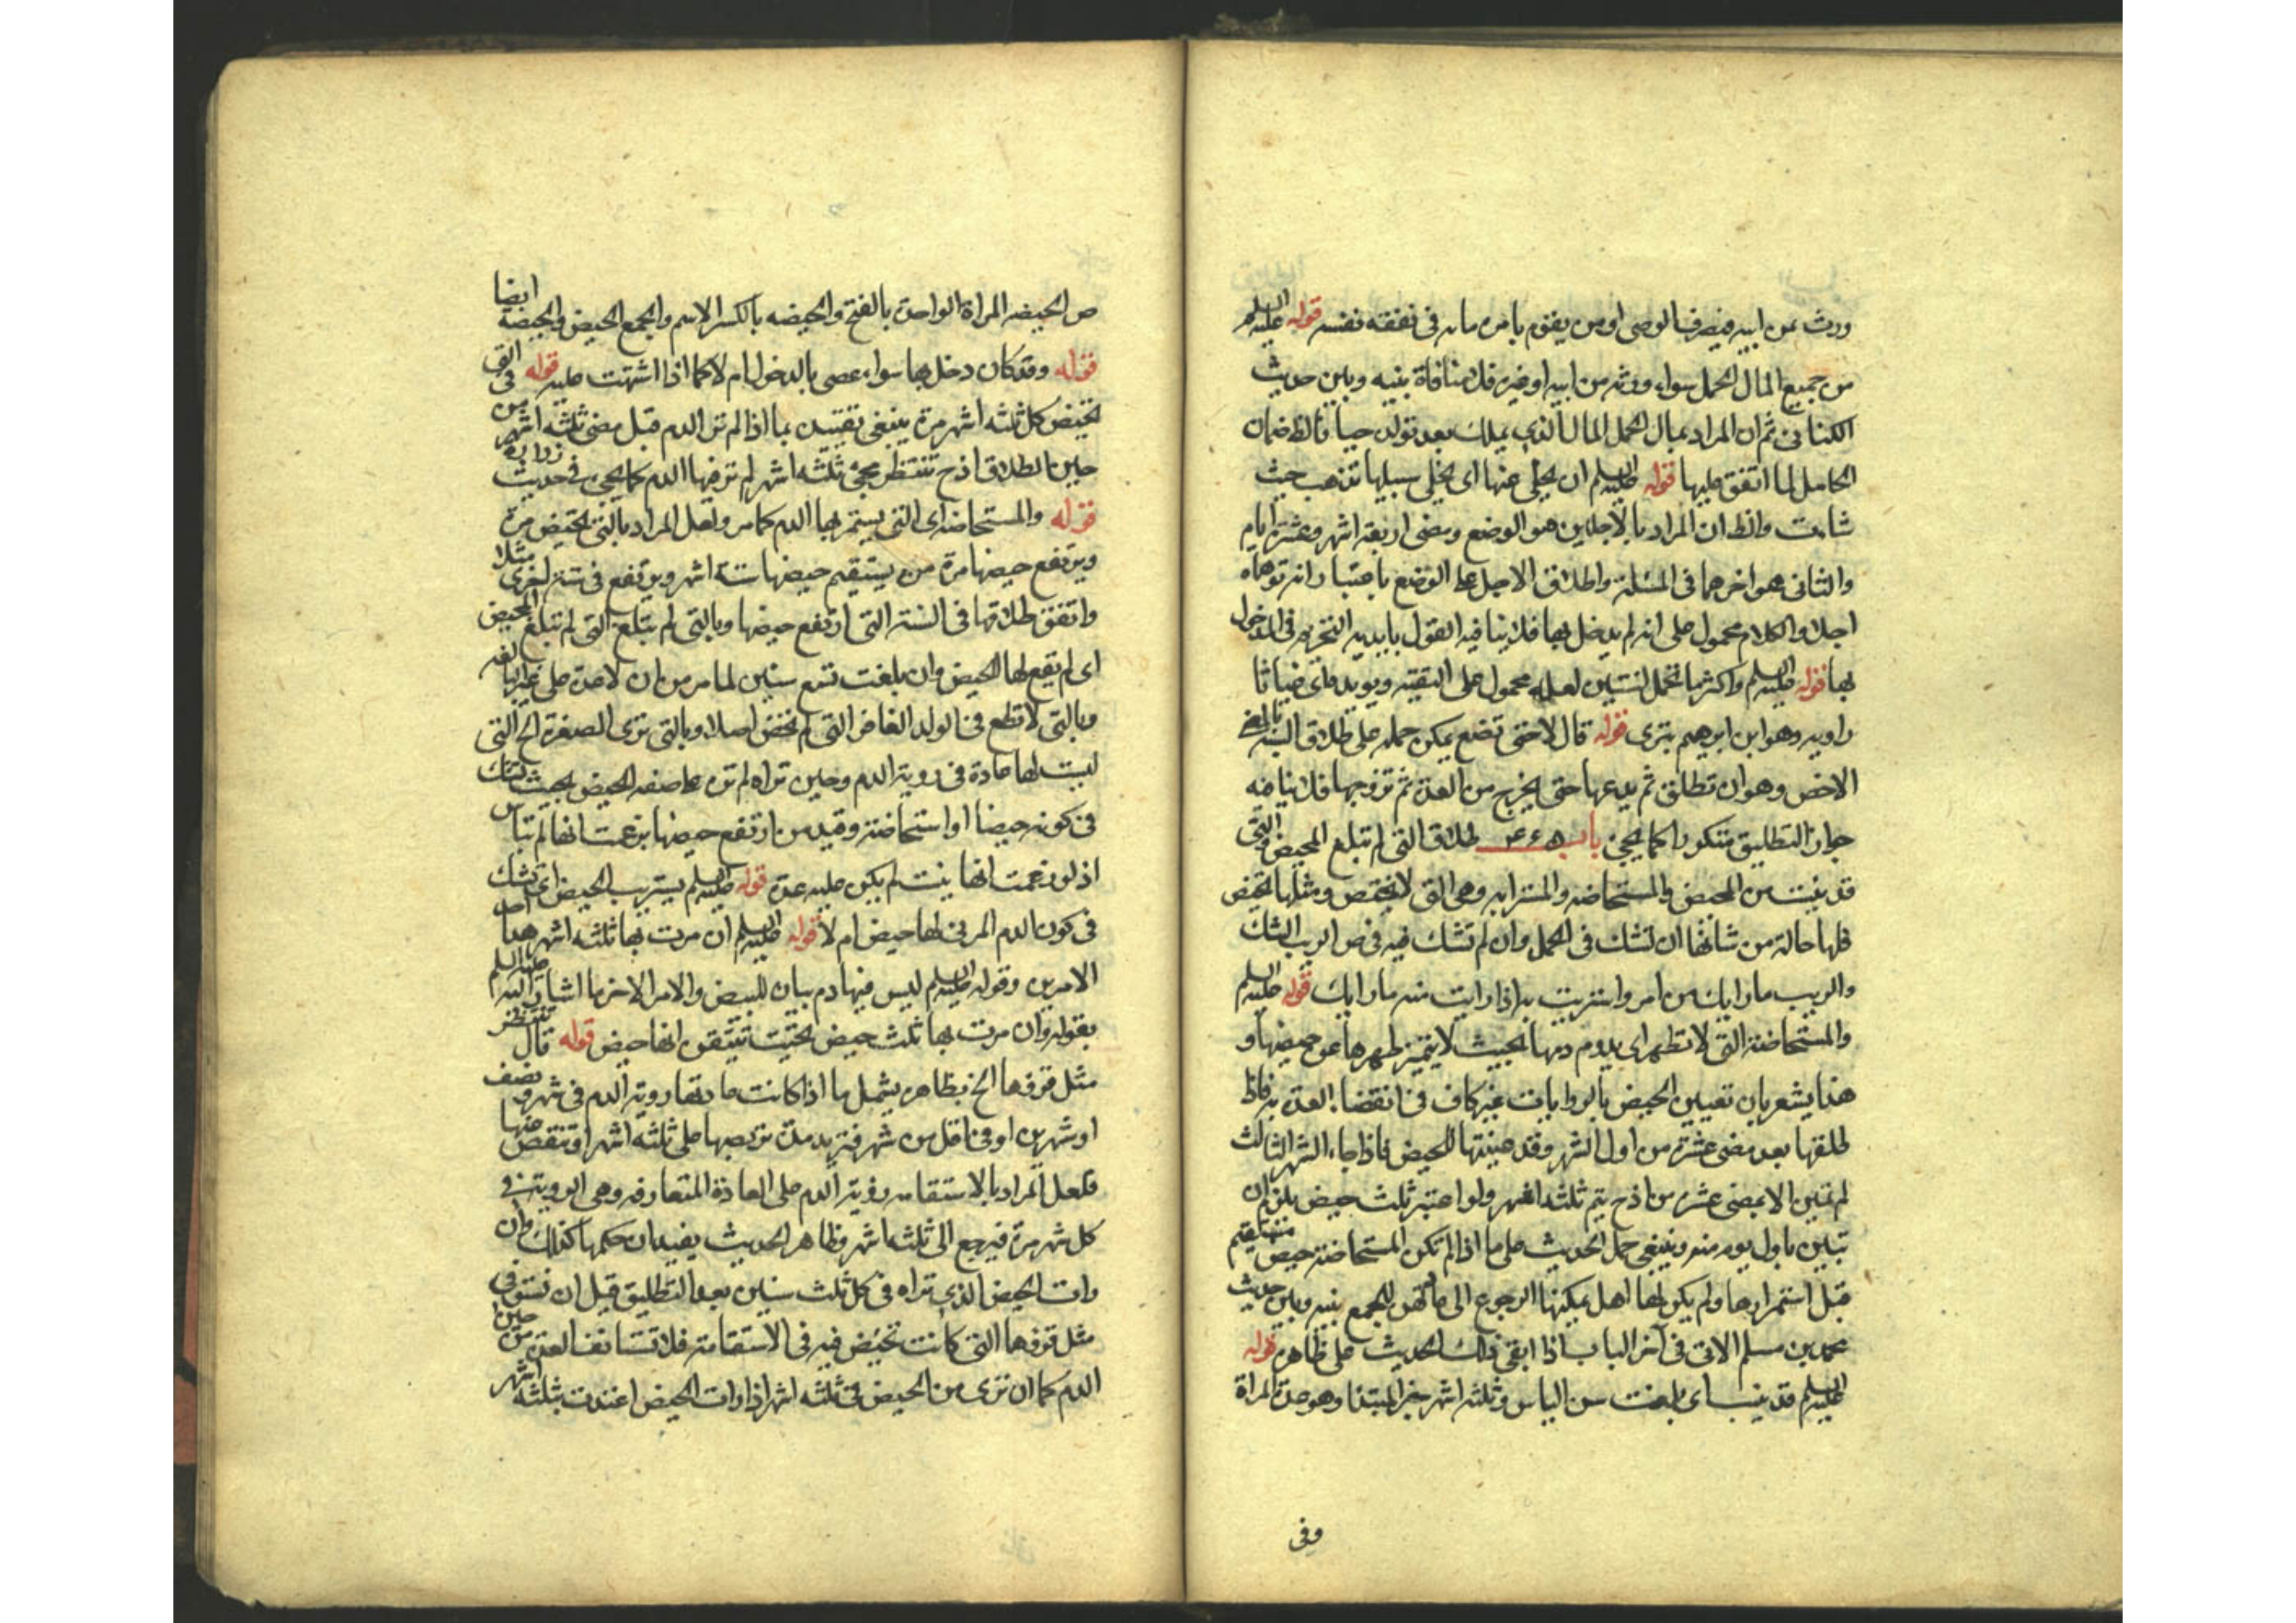 ورث من ابيه فيصرف الوصى او من يقوم بامره ماله فى نفقته نفسه قوله عليه السلم
من جميع المال الحمل سواء ورثه من ابيه او غيره فلا منافاة بينه وبين حديث
الكنانى ثم ان المراد بمال الحمل المال الذى يملك بعد تولده حيا فالظ ضمان
الكامل لما اتفق عليها قوله عليه السلم ان يخلى عنها اى يخلى سبيلها تذهب حيث
شاءت والظ ان المراد بالاجلين هو الوضع ومضى اربعة اشهر وعشرة ايام
والثانى هو اخرهما فى المسئلة واطلاق الاجل على الوضع باعتبار انه توهماه
اجلا والكلام محمول على انه لم يدخل بها فلا ينافيه القول بابدية التحريم فى الدخول
بها قوله عليه السلم واكثر ما تحمل لسنتين لعله محمول على التقية ويويده ان غياثا
راويه وهو ابن ابرهيم بترى قوله قال لا حتى تضع يمكن حمله على طلاق السنة بالمعنى
الاخص وهو ان تطلق ثم يدعها حتى يخرج من العدة ثم تزوجها فلا ينافيه
جواز التطليق متكررا كما يجئ باب طلاق التى لم تبلغ المحيض والتى
قد يئست من المحيض والمستحاضه والمسترابه وهى التى لا تحيض ومثلها تحيض
فلها حالة من شانها ان تشك فى الحمل وان لم تشك فيه فى ص الريب الشك
والريب ما رابك من امر واستربت به اذا رايت منه ما رابك قوله عليه السلم
والمستحاضة التى لا تطهر اى يدوم دمها بحيث لا يتميز طهرها عن حيضها و
هذا يشعر بان تعيين الحيض بالروايات غير كاف فى انقضاء العدة به فاذا
طلقها بعد مضى عشرة من اول الشهر وقد عينتها للحيض فاذا جاء الشهر الثالث
لم تبين الا بمضى عشرة من اذ ح يتم ثلثه اشهر ولو اعتبر ثلث حيض يلزم ان
تبين باول يوم منه وينبغى حمل الحديث على ما اذا لم تكن المستحاضة حيض مستقيم
قبل استمرارها ولم يكن لها اهل يمكنها الرجوع الى للجمع بينه وبين حديث
محمد بن مسلم الاتى فى آخر الباب اذا ابقى ذلك الحديث على ظاهره قوله
عليه السلم قد يئست اى بلغت سن الياس وثلثه اشهر خبر المبتدا وهو عدة المراة
وفى
ص الحيضه المراة الواحدة بالفتح والحيضه بالكسر الاسم والجمع الحيض والحيضة ايضا
قوله وقد كان دخل بها سواء عصى بالدخول ام لا كما اذا اشتهت عليه قوله فى التى
تحيض كل ثلثه اشهر مرة ينبغى تقييده بما اذا لم تر الدم قبل مضى ثلثه اشهر من
حين الطلاق اذ ح تنتظر مجئ ثلثه اشهر لم تر فيها الدم كما يجئ فى حديث زرارة
قوله والمستحاضه اى التى يستمر بها الدم كما مر ولعل المراد بالتى تحيض مرة
ويرتفع حيضها مرة من يستقيم حيضها ستة اشهر ويرتفع فى ستة اخرى مثلا
واتفق طلاقها فى الستة التى ارتفع حيضها وبالتى لم تبلغ التى لم تبلغ المحيض
اى لم يقع لها الحيض وان بلغت تسع سنين لما مر من ان لا عدة على غير البالغه
وبالتى لا تطمع فى الولد التى لم تحض اصلا وبالتى ترى الصفرة الخ التى
ليست لها عادة فى روية الدم وحين تراه لم تره على صفه الحيض بحيث تشك
فى كونه حيضا او استحاضة وقيد من ارتفع حيضها بزعمت انها لم تياس
اذ لو زعمت انها يئست لم يكن عليه عدة قوله عليه السلم يستريب الحيض اى تشك
فى كون الدم المرئى لها حيض ام لا قوله عليه السلم ان مرت بها ثلثه اشهر هذا احد
الامرين وقوله عليه السلم ليس فيها دم بيان للبيض والامر الاخر ما اشار اليه عليه السلم
بقوله وان مرت بها ثلث حيض تتيقن انها حيض قوله قال تنتظر
مثل قروها الخ بظاهره يشمل ما اذا كانت عادتها روية الدم فى شهر ونصف
او شهرين او فى اقل من شهر فتزيد مدة تربصها على ثلثه اشهر او تنقص عنها
فلعل المراد بالاستقامه روية الدم على العادة المتعارفه وهى الروية فى
كل شهر مرة فيرجع الى ثلثه اشهر وظاهر الحديث يفيد ان حكمها كذلك وان
رات الحيض الذى تراه فى كل ثلث سنين بعد التطليق قبل ان تستوفى
مثل قروها التى كانت تحيض فيه فى الاستقامة فلا تستانف العدة من حين
الدم كما ان ترى من الحيض فى ثلثه اشهر اذا رات الحيض اعتدت بثلثه اشهر